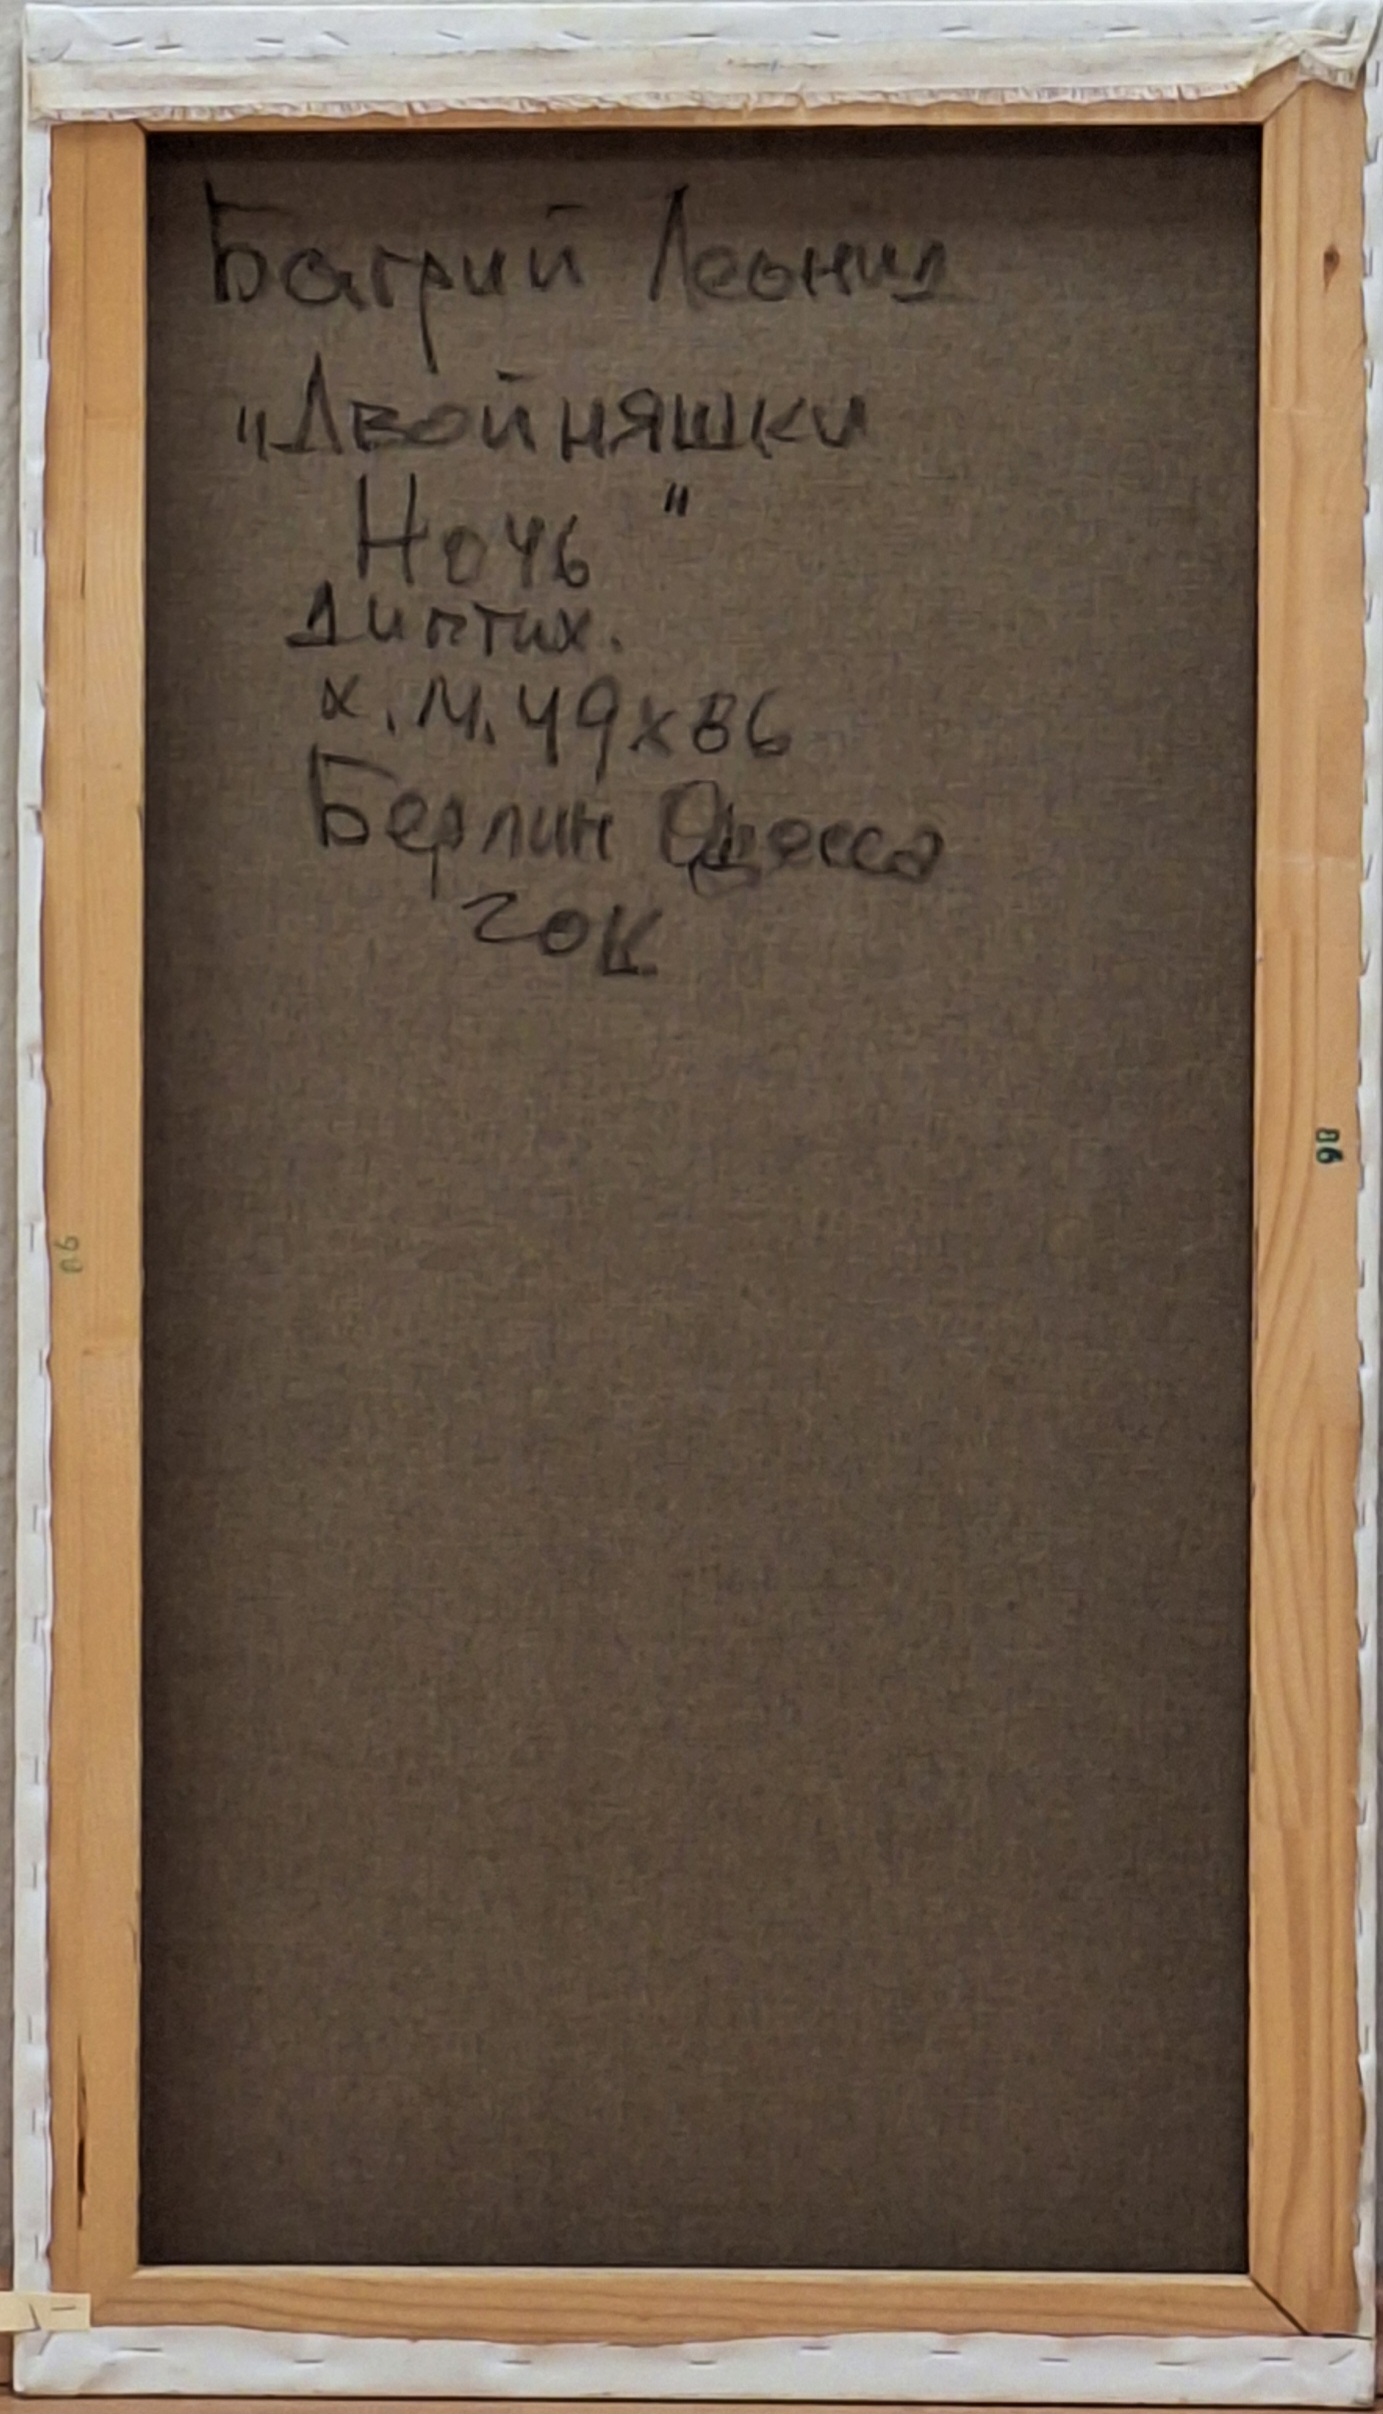 Багрий Леонид
„Двойняшки
Ночь "
диптих.
х.м. 49х86
Берлин Одесса
86